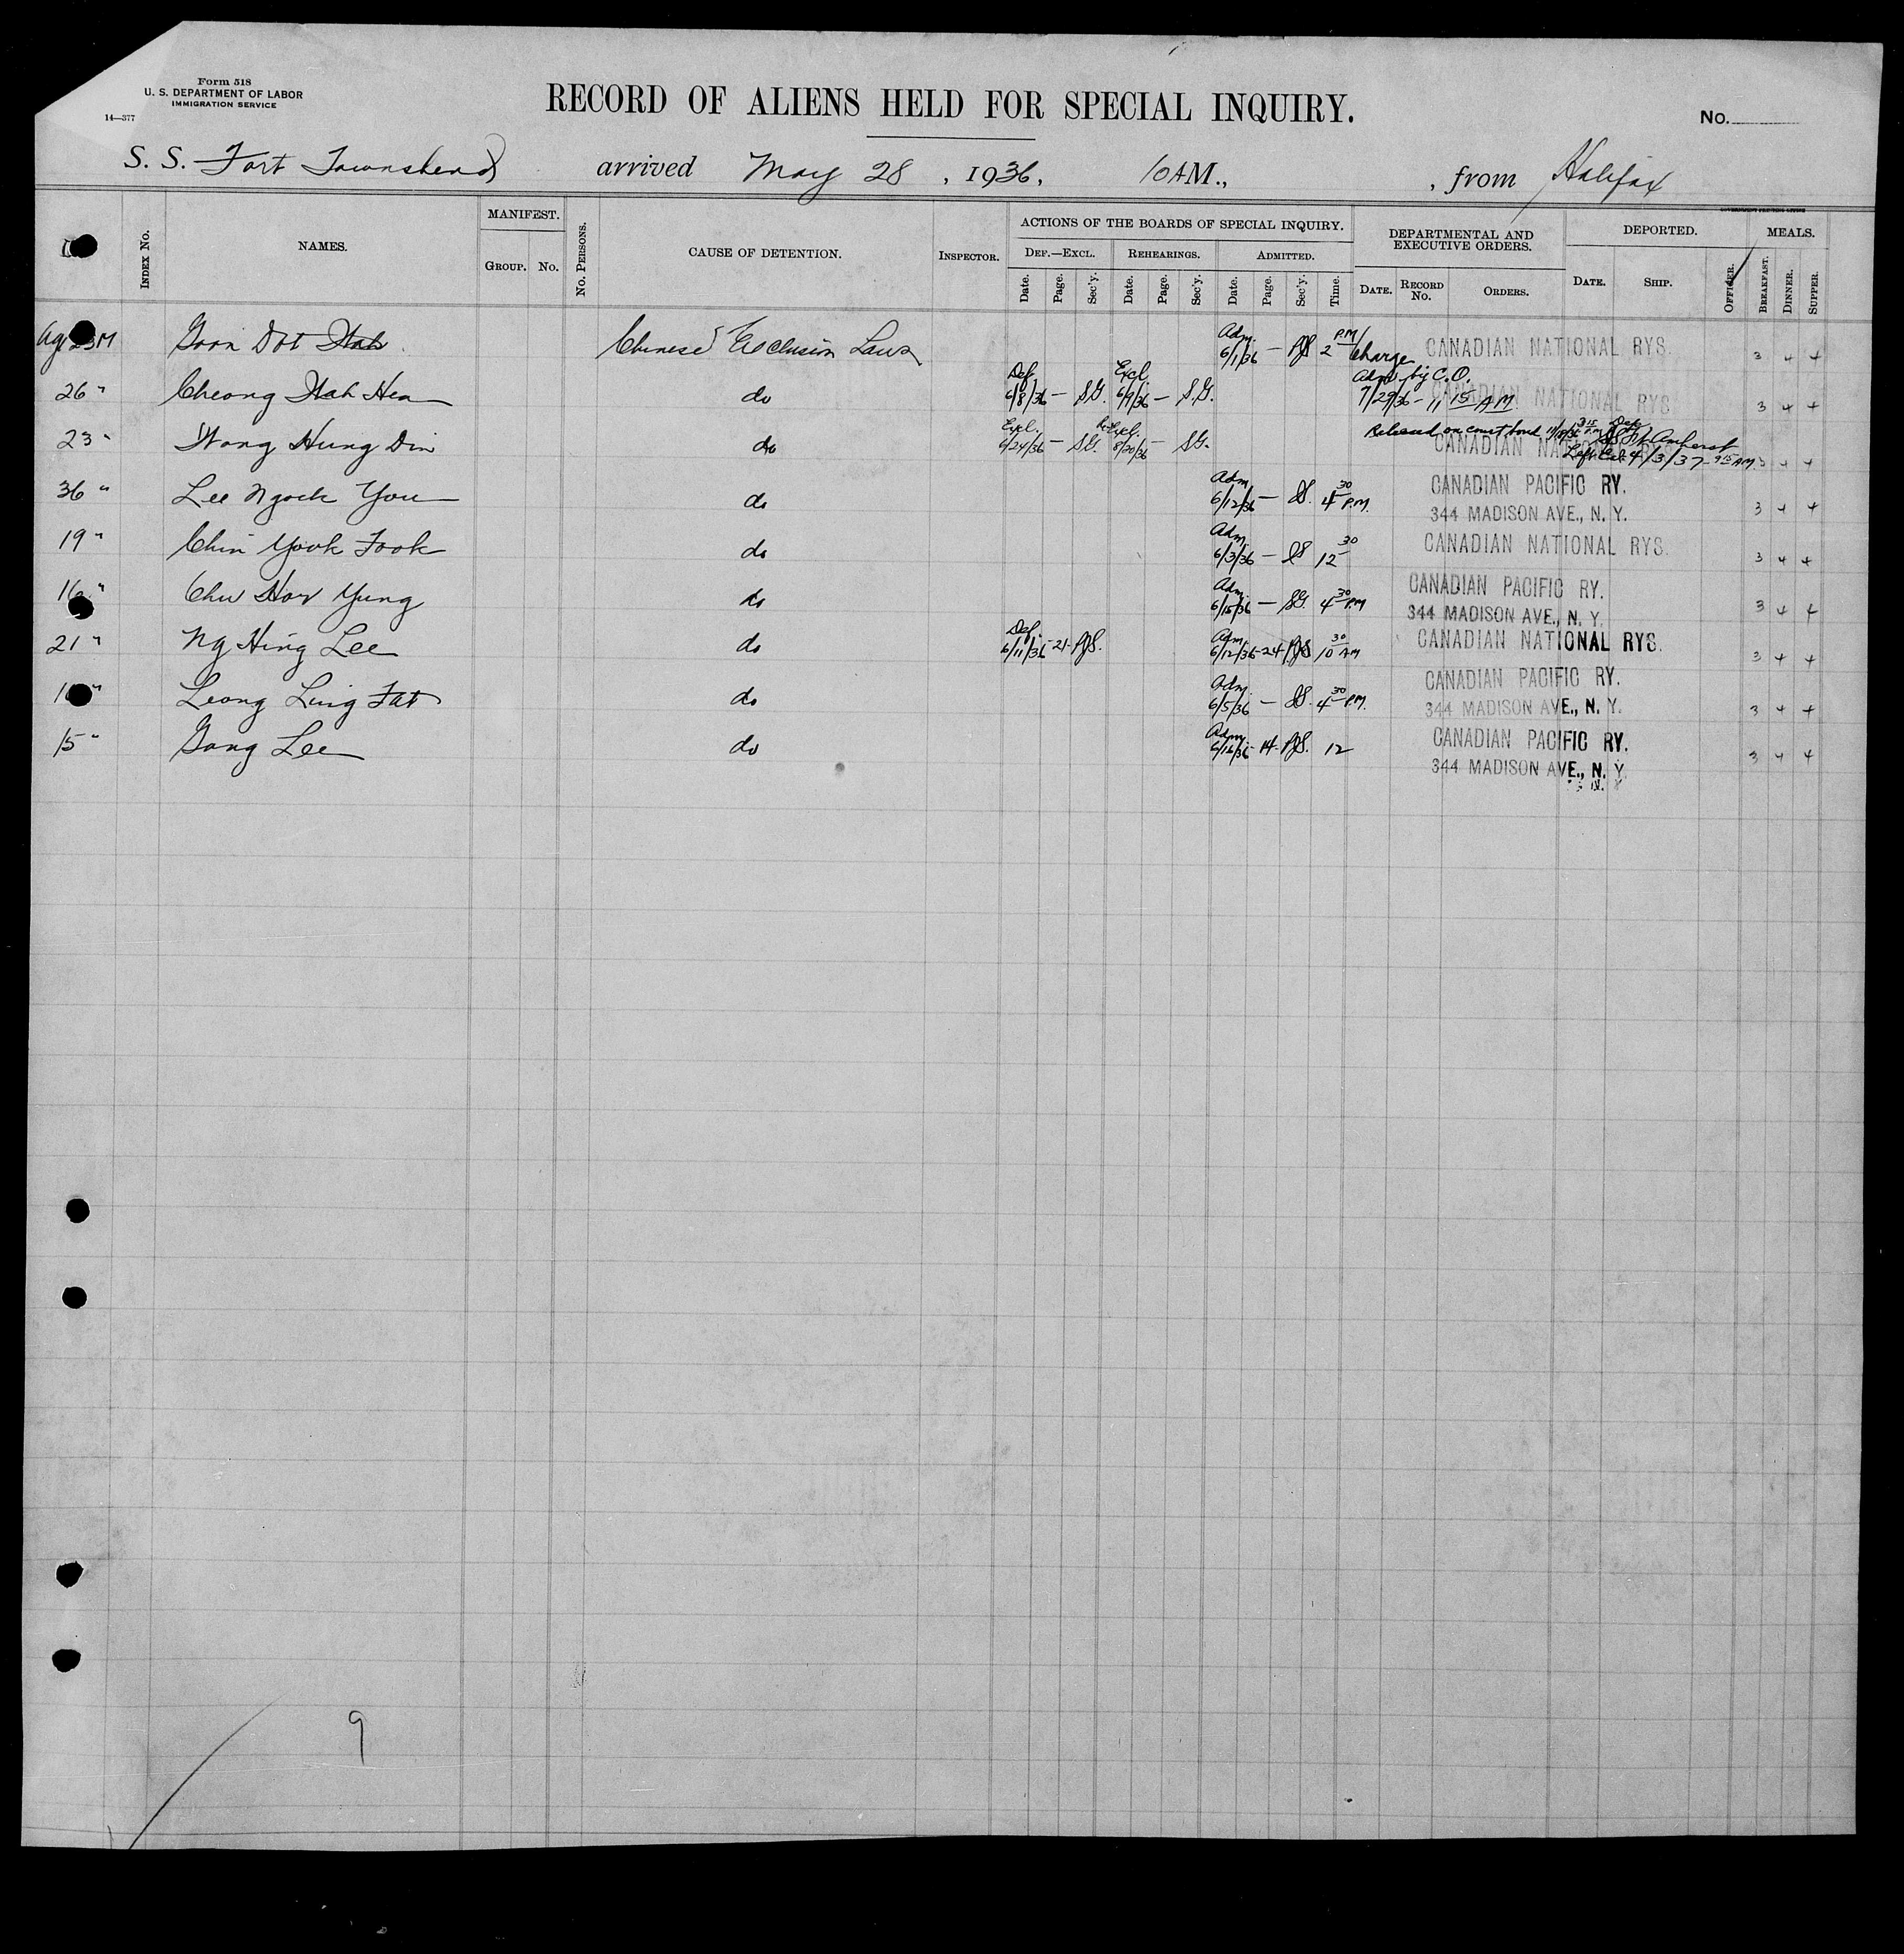 Form 518
U. S. DEPARTMENT OF LABOR
IMMIGRATION SERVICE
14—377
RECORD OF ALIENS HELD FOR SPECIAL INQUIRY.
No.
S. S. Fort Townshend arrived May 28, 1936, 10 AM., , from Halifax
GOVERNMENT PRINTING OFFICE
INDEX No. NAMES. MANIFEST. GROUP. No. No. PERSONS. CAUSE OF DETENTION. INSPECTOR. ACTIONS OF THE BOARDS OF SPECIAL INQUIRY. DEPARTMENTAL AND EXECUTIVE ORDERS. DEPORTED. MEALS.
DEF.—EXCL. REHEARINGS. ADMITTED.
Date. Page. Sec'y. Date. Page. Sec'y. Date. Page. Sec'y. Time. DATE. RECORD No. ORDERS. DATE. SHIP. OFFICER. BREAKFAST. DINNER. SUPPER.
Age 23 M Goon Dot Wah Chinese Exclusion Laws Adm. 6/1/36 — PJS 2 PM CANADIAN NATIONAL RYS. 3 4 4
26 " Cheong Wah Hen do Def. 6/8/36 — S.G. Excl. 6/9/36 — S.G. Charge Adm by C.O. 7/29/36 - 11 15 AM CANADIAN NATIONAL RYS 3 4 4
23 " Wong Hung Din do Excl. 6/24/36 — S.G. Excl. 8/20/36 — S.G. Released on court bond CANADIAN NATIONAL Dep SS Ft. Amherst Left 4/3/37 - 9 15 AM 3 4 4
36 " Lee Ngock You do Adm 6/12/36 — S. 4 30 P.M. CANADIAN PACIFIC RY.
344 MADISON AVE., N. Y. 3 4 4
19 " Chin Yook Fook do Adm. 6/3/36 — S 12 30 CANADIAN NATIONAL RYS. 3 4 4
16 " Chu Hor Yung do Adm. 6/15/36 — S.G. 4 30 PM CANADIAN PACIFIC RY.
344 MADISON AVE., N. Y. 3 4 4
21 " Ng Hing Lee do Def. 6/11/36 - 21 - PJS. Adm. 6/12/36 - 24 - PJS 10 30 AM CANADIAN NATIONAL RYS. 3 4 4
" Leong Luig Fat do Adm. 6/5/36 — S. 4 30 P.M. CANADIAN PACIFIC RY.
344 MADISON AVE., N. Y. 3 4 4
15 " Gong Lee do Adm. 6/16/36 - 14 - PJS. 12 CANADIAN PACIFIC RY.
344 MADISON AVE., N. Y. 3 4 4
9